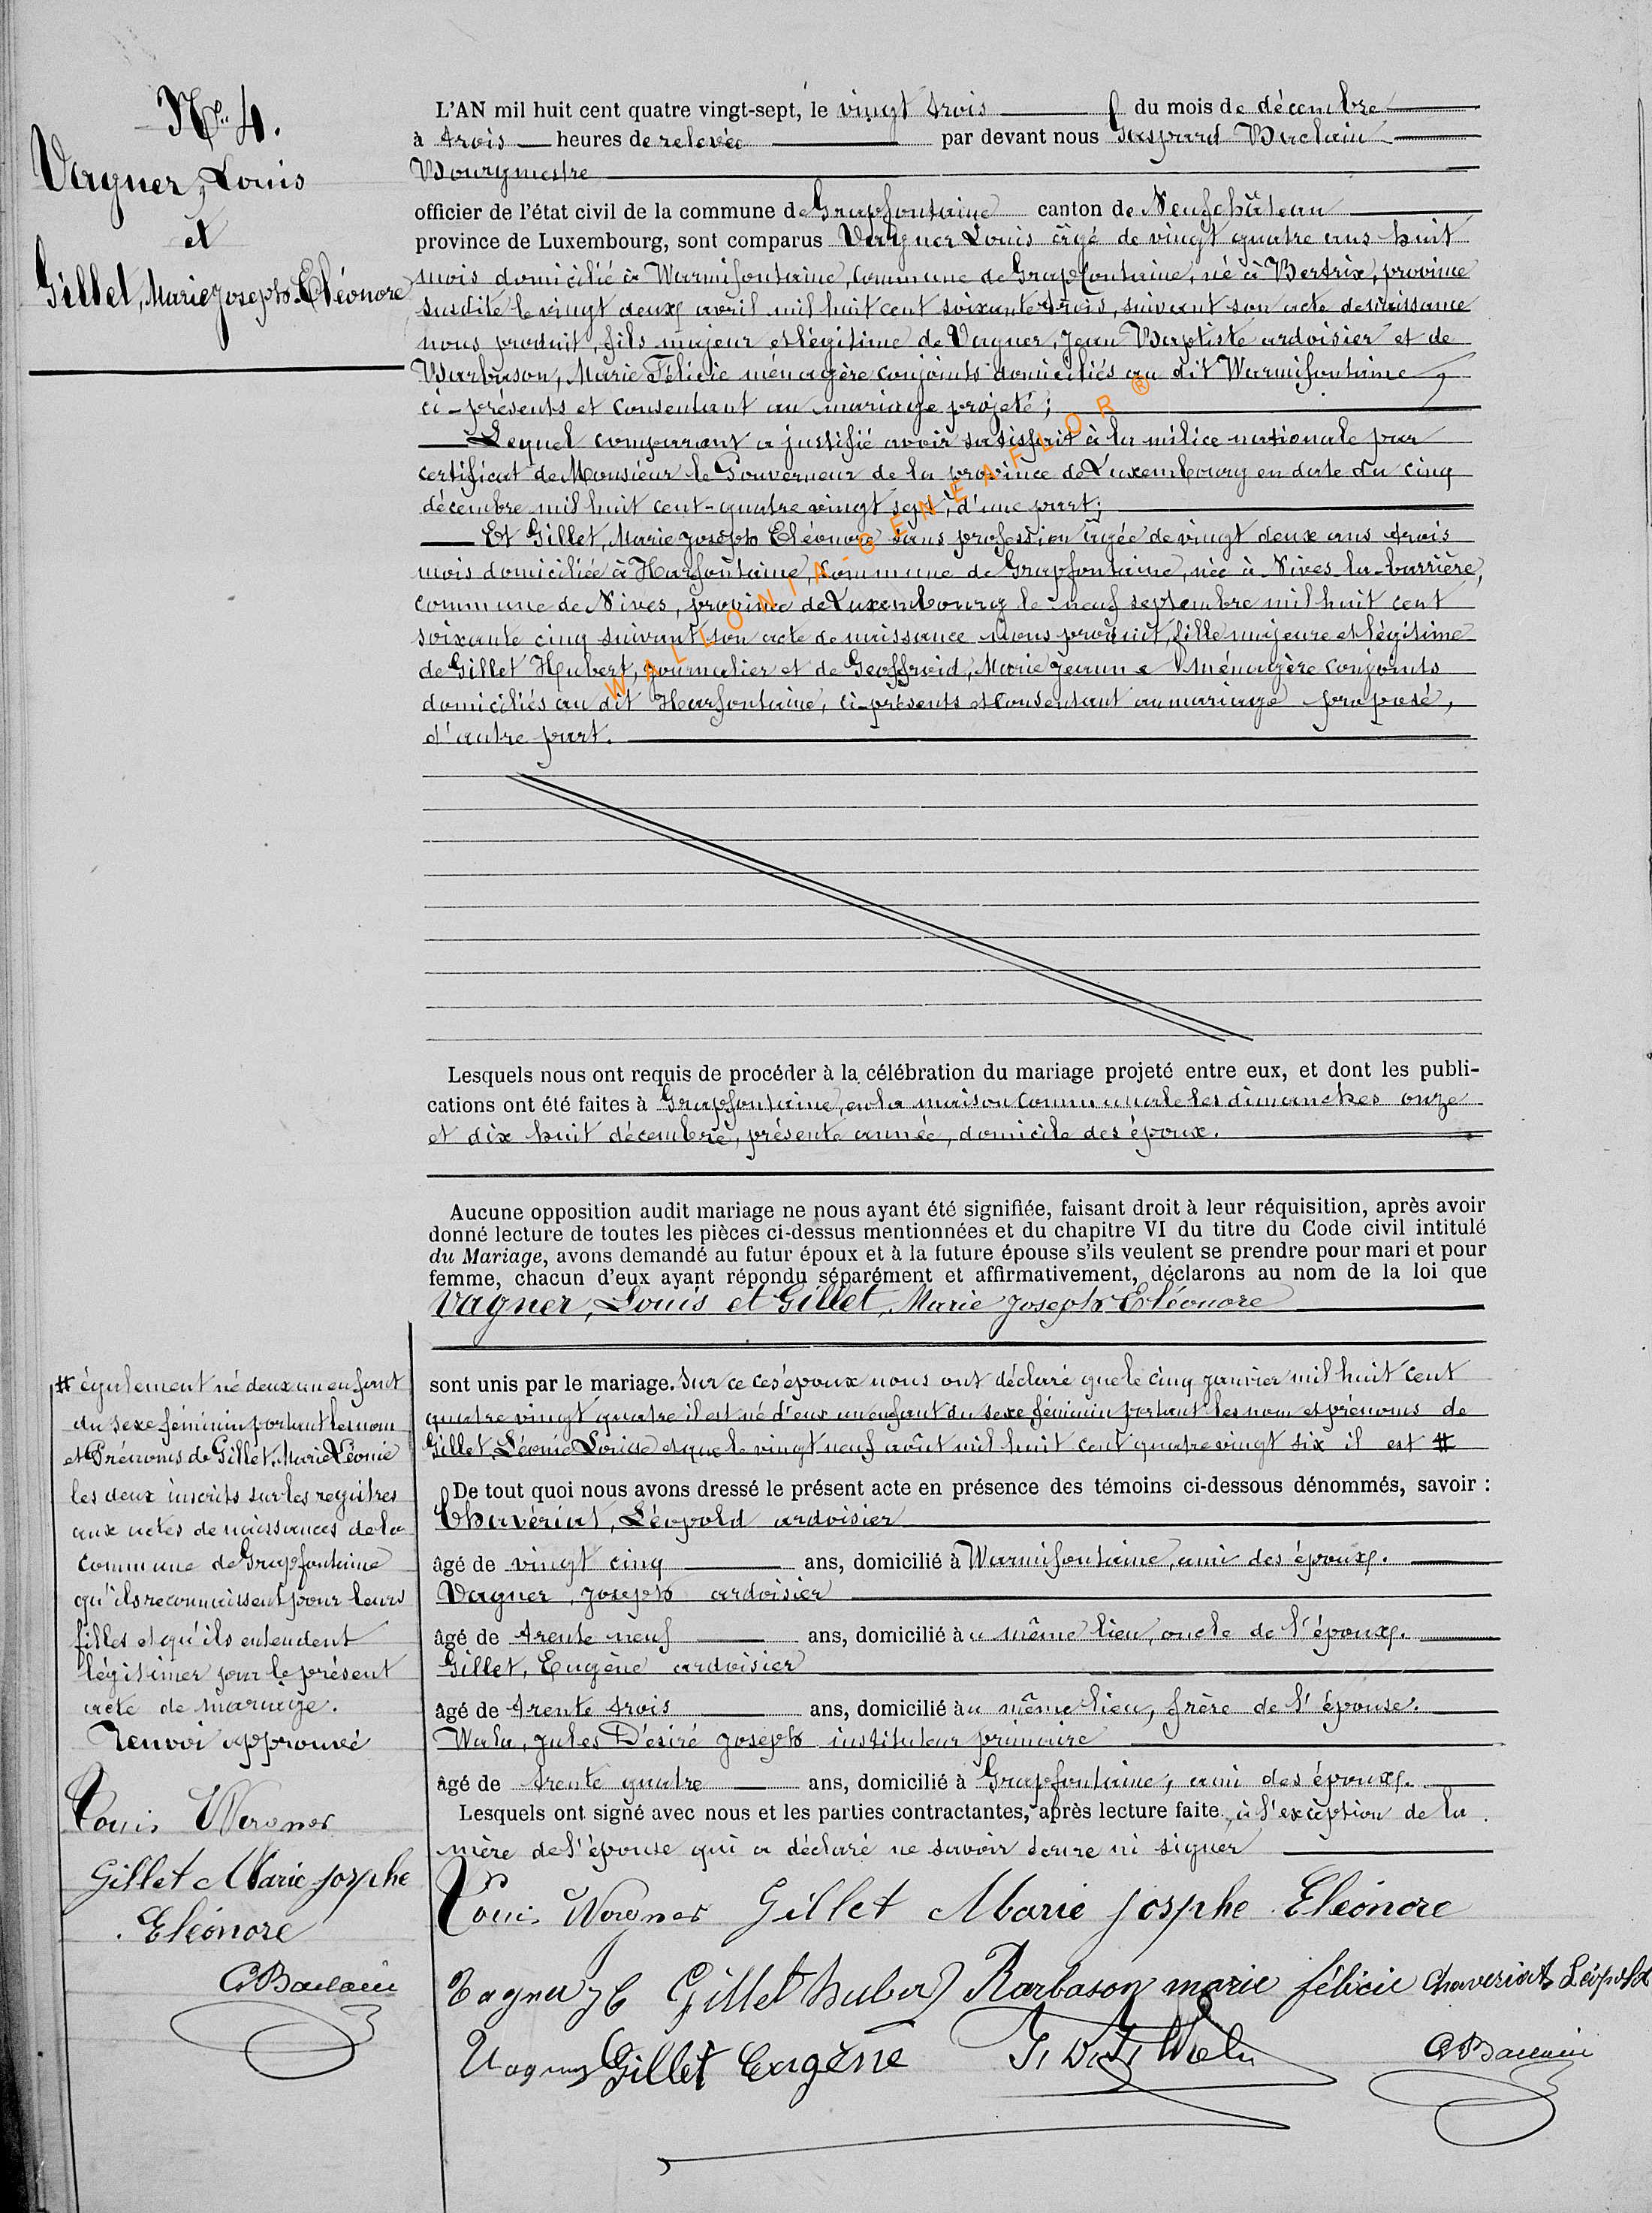 N° 4.
Vagner, Louis
et
Gillet, Marie Joseph Eléonore
L'AN mil huit cent quatre vingt-sept, le vingt trois du mois de décembre
à trois heures de relevée par devant nous Gaspard Baclain
Bourgmestre
officier de l'état civil de la commune de Grapfontaine canton de Neufchâteau
province de Luxembourg, sont comparus Vagner Louis âgé de vingt quatre ans huit
mois domicilié à Warmifontaine, commune de Grapfontaine, né à Bertrix, province
susdite le vingt deux avril mil huit cent soixante trois, suivant son acte de naissance
nous produit, fils majeur et légitime de Vagner, Jean Baptiste ardoisier et de
Barbason, Marie Félicie ménagère conjoints domiciliés au dit Warmifontaine,
ci-présents et consentant au mariage projeté;
Lequel comparant a justifié avoir satisfait à la milice nationale par
certificat de Monsieur le Gouverneur de la province de Luxembourg en date du cinq
décembre mil huit cent-quatre vingt sept, d'une part;
Et Gillet, Marie Joseph Eléonore sans profession âgée de vingt deux ans trois
mois domiciliée à Harfontaine, commune de Grapfontaine, née à Nives la-barrière,
commune de Nives, province de Luxembourg le neuf septembre mil huit cent
soixante cinq suivant son acte de naissance nous produit, fille majeure et légitime
de Gillet Hubert, journalier et de Geoffroid, Marie Jeanne ménagère conjoints
domiciliés au dit Harfontaine, ci-présents et consentant au mariage proposé,
d'autre part.
WALLONIA-GENEAFLOR ®
Lesquels nous ont requis de procéder à la célébration du mariage projeté entre eux, et dont les publi-
cations ont été faites à Grapfontaine, en la maison communale les dimanches onze
et dix huit décembre, présente année, domicile des époux.
Aucune opposition audit mariage ne nous ayant été signifiée, faisant droit à leur réquisition, après avoir
donné lecture de toutes les pièces ci-dessus mentionnées et du chapitre VI du titre du Code civil intitulé
du Mariage, avons demandé au futur époux et à la future épouse s'ils veulent se prendre pour mari et pour
femme, chacun d'eux ayant répondu séparément et affirmativement, déclarons au nom de la loi que
Vagner, Louis et Gillet, Marie Joseph Eléonore
sont unis par le mariage. Sur ce ces époux nous ont déclaré que le cinq janvier mil huit cent
quatre vingt quatre il est né d'eux un enfant du sexe féminin portant les nom et prénoms de
Gillet, Léonie Louise et que le vingt neuf août mil huit cent quatre vingt six il est #
# également né deux un enfant
du sexe féminin portant les nom
et Prénoms de Gillet, Marie Léonie
les deux inscrits sur les registres
aux actes de naissances de la
commune de Grapfontaine
qu'ils reconnaissent pour leurs
filles et qu'ils entendent
légitimer par le présent
acte de mariage.
Renvoi approuvé
Louis Wagner
Gillet Marie josphe
Eléonore
G Baclain
De tout quoi nous avons dressé le présent acte en présence des témoins ci-dessous dénommés, savoir :
Chavériat, Léopold ardoisier
âgé de vingt cinq ans, domicilié à Warmifontaine, ami des époux.
Vagner, Joseph ardoisier
âgé de trente neuf ans, domicilié au même lieu, oncle de l'époux.
Gillet, Eugène ardoisier
âgé de trente trois ans, domicilié au même lieu, frère de l'épouse.
Wala, Jules Désiré Joseph instituteur primaire
âgé de trente quatre ans, domicilié à Grapfontaine, ami des époux.
Lesquels ont signé avec nous et les parties contractantes, après lecture faite, à l'exception de la
mère de l'épouse qui a déclaré ne savoir écrire ni signer
Louis Wagner Gillet Marie josphe Eléonore
Vagner Gillet huber Barbason marie félicie Chaveriat Léopold
Vagner Gillet Eugène J. D. J. Wala G Baclain